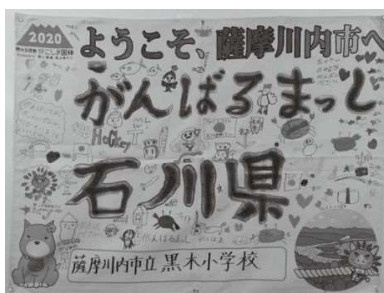 2020
ようこそ、薩摩川内市へ
がんばるまっし
石川県
HocKey
薩摩川内市立 黒木小学校